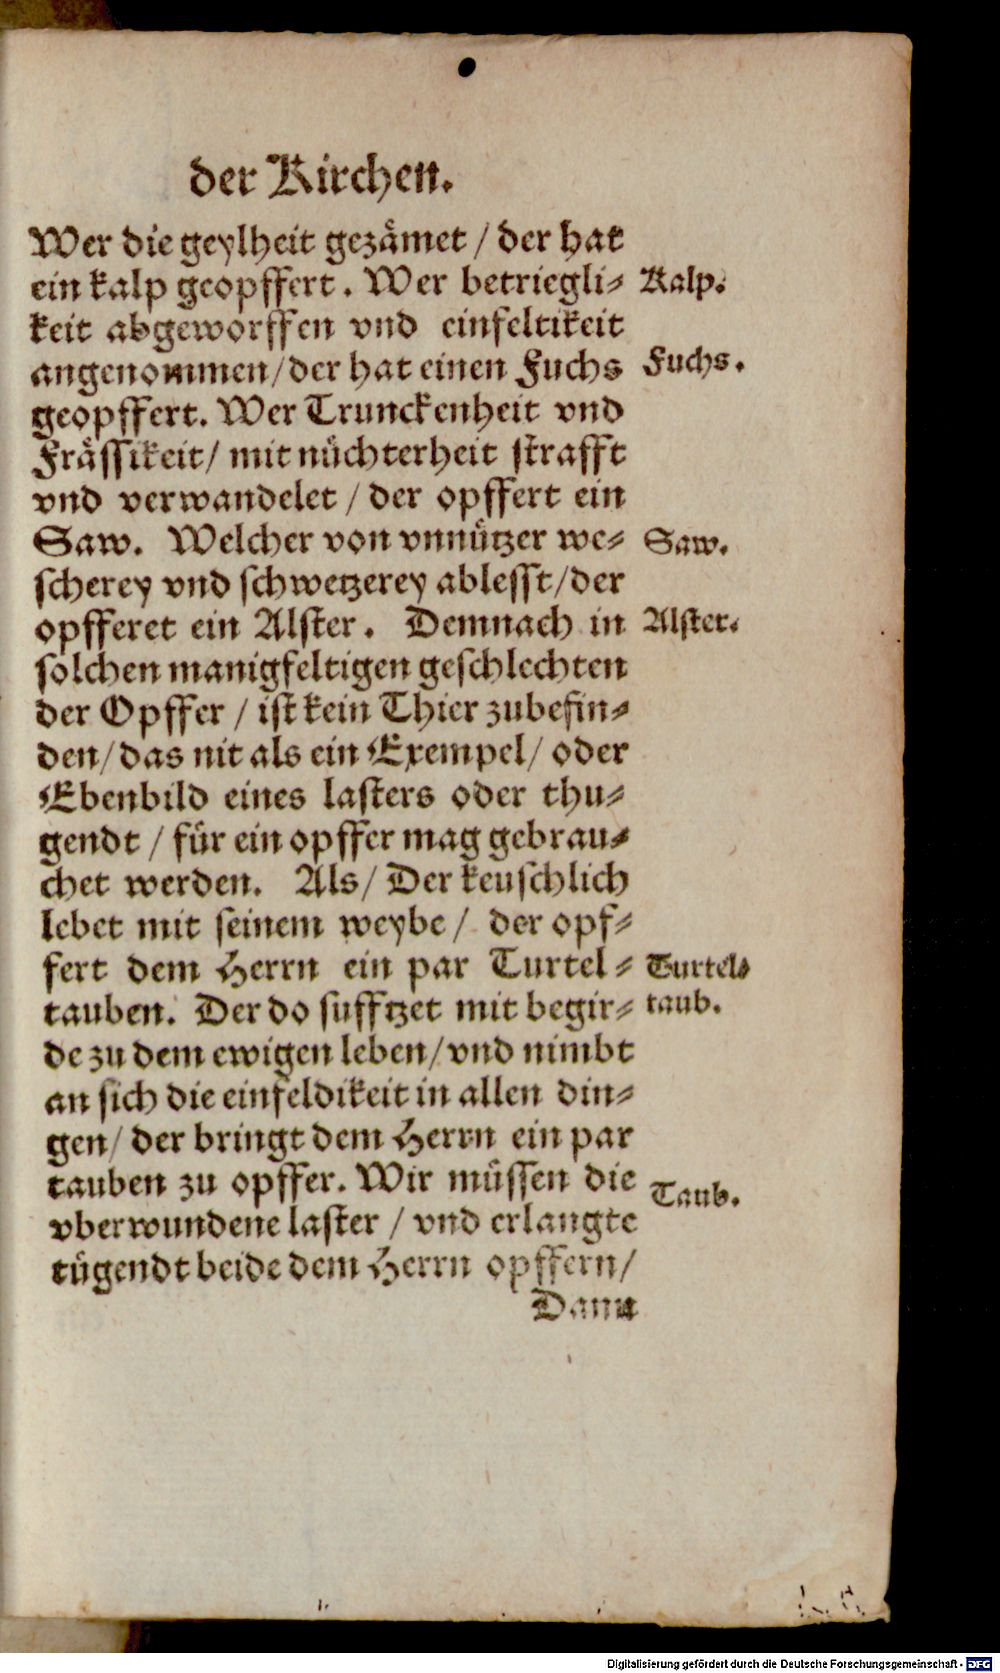 der Kirchen.
Wer die geylheit gezämet / der hat
ein kalp geopffert. Wer betriegli⸗
Kalp.
keit abgeworffen vnd einfeltikeit
angenommen/der hat einen Fuchs
Fuchs.
geopffert. Wer Trunckenheit vnd
Frässikeit/ mit nüchterheit strafft
vnd verwandelet / der opffert ein
Saw. Welcher von vnnützer we⸗
Saw.
scherey vnd schwetzerey ablesst/der
opfferet ein Alster. Demnach in
Alster.
solchen manigfeltigen geschlechten
der Opffer / ist kein Thier zubefin⸗
den/das nit als ein Exempel/ oder
Ebenbild eines lasters oder thu⸗
gendt / für ein opffer mag gebrau⸗
chet werden. Als/ Der keuschlich
lebet mit seinem weybe / der opf⸗
fert dem Herrn ein par Turtel⸗
Turtel⸗
tauben. Der do sufftzet mit begir⸗
taub.
de zu dem ewigen leben/vnd nimbt
an sich die einfeldikeit in allen din⸗
gen/ der bringt dem Herrn ein par
tauben zu opffer. Wir müssen die
Taub.
vberwundene laster / vnd erlangte
tügendt beide dem Herrn opffern/
Dann
Digitalisierung gefördert durch die Deutsche Forschungsgemeinschaft - DFG